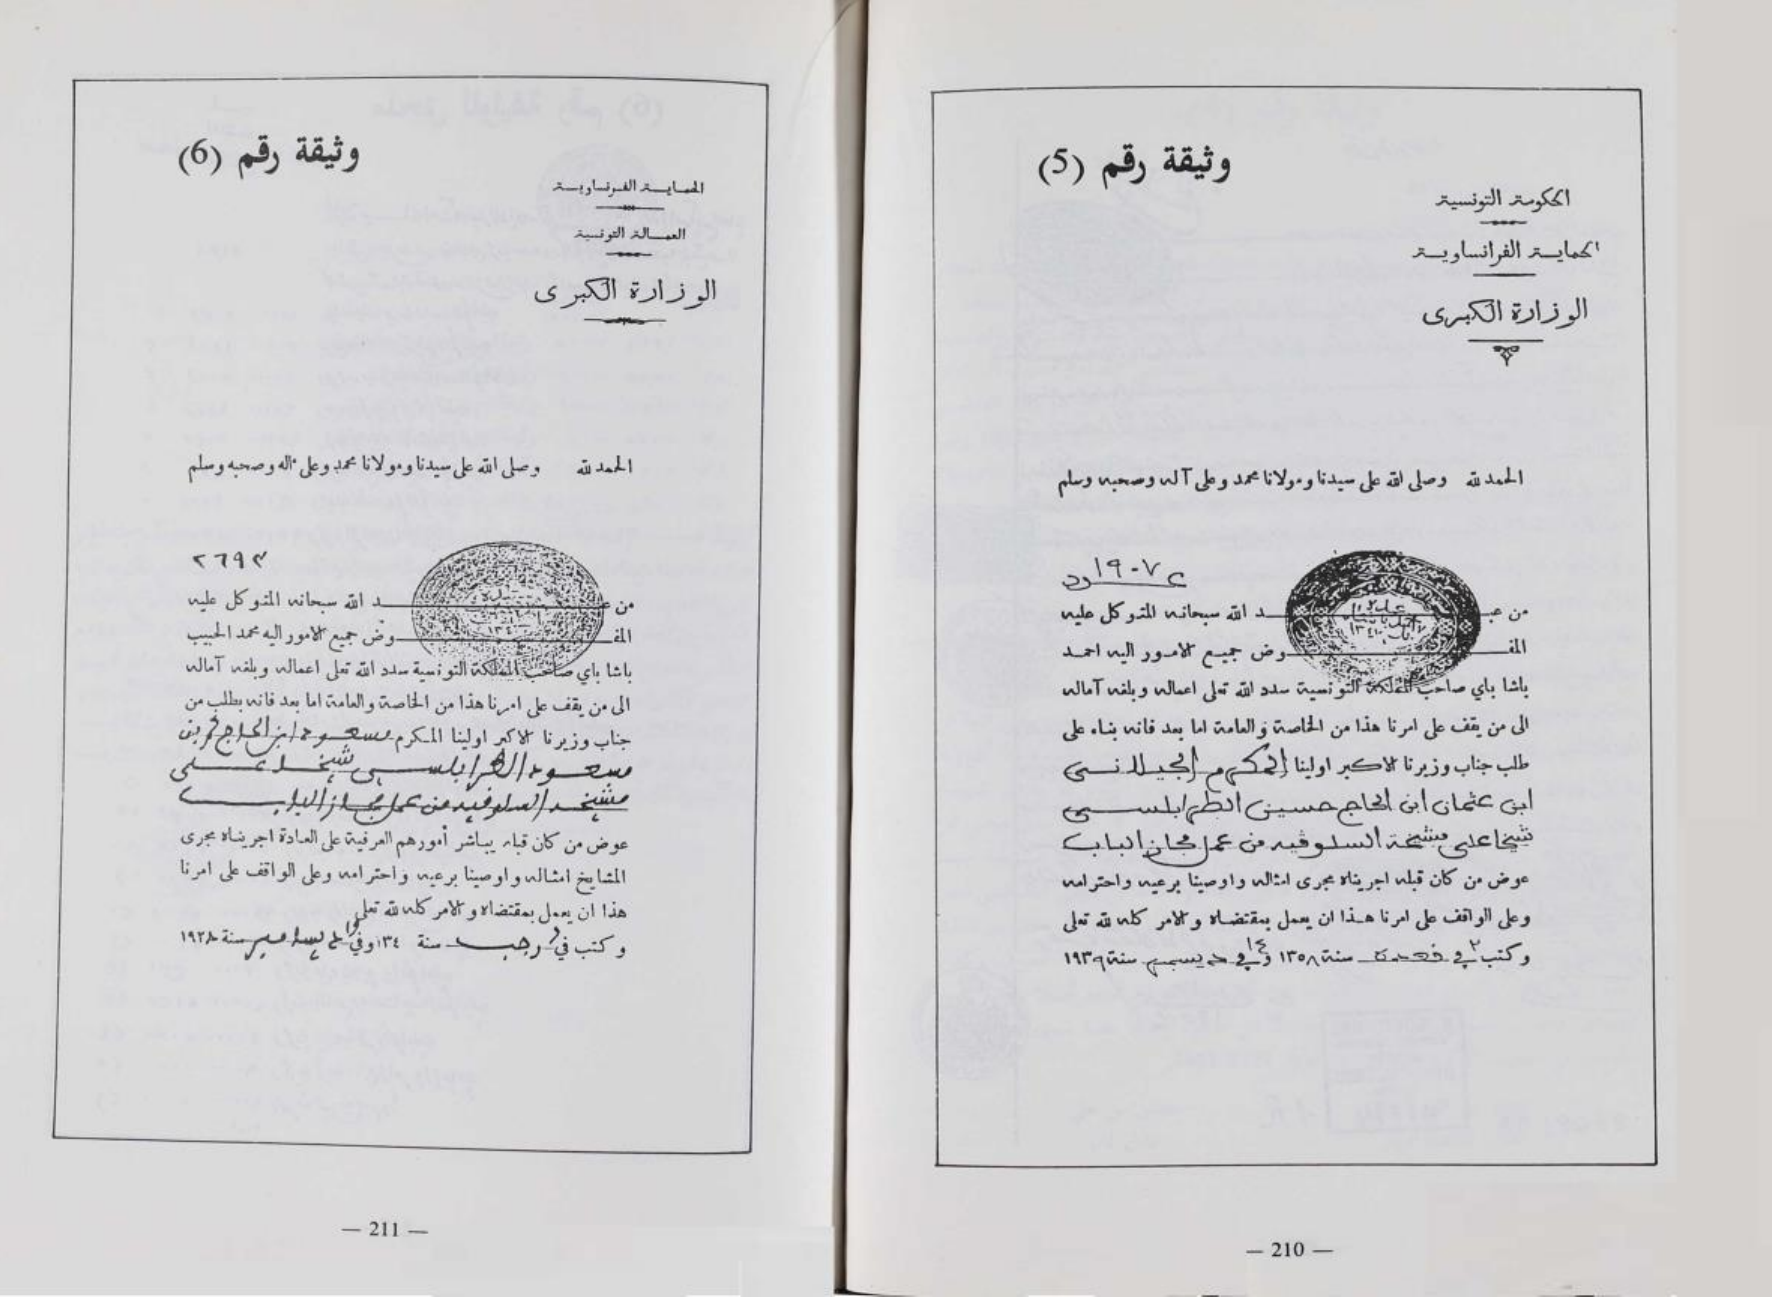 وثيقة رقم (5)
الحكومة التونسية
الحماية الفرانساوية
الوزارة الكبرى
الحمد لله وصلى الله على سيدنا ومولانا محمد وعلى آله وصحبه وسلم
١٩٠٧
من عبد الله سبحانه المتوكل عليه
المفوض جميع الامور اليه احمد
باشا باي صاحب المملكة التونسية سدد الله تعلى اعماله وبلغه آماله
الى من يقف على امرنا هذا من الخاصة والعامة اما بعد فانه بناء على
طلب جناب وزيرنا الاكبر اولينا المكرم الجيلاني
ابن عثمان ابن الحاج حسين الطرابلسي
شيخا على مشيخة السلوقيه من عمل مجاز الباب
عوض من كان قبله اجريناه مجرى امثاله واوصينا برعيه واحترامه
وعلى الواقف على امرنا هذا ان يعمل بمقتضاه والامر كله لله تعلى
وكتب في ٢ قعدة سنة ١٣٥٨ وفي ١٤ ديسمبر سنة ١٩٣٩
— 210 —
وثيقة رقم (6)
الحماية الفرنساوية
العمالة التونسية
الوزارة الكبرى
الحمد لله وصلى الله على سيدنا ومولانا محمد وعلى ءاله وصحبه وسلم
٢٦٩٣
من عبد الله سبحانه المتوكل عليه
المفوض جميع الامور اليه محمد الحبيب
باشا باي صاحب المملكة التونسية سدد الله تعلى اعماله وبلغه آماله
الى من يقف على امرنا هذا من الخاصة والعامة اما بعد فانه بطلب من
جناب وزيرنا الاكبر اولينا المكرم مسعود ابن الحاج بن
مسعود الطرابلسي شيخا على
مشيخة السلوقيه من عمل مجاز الباب
عوض من كان قبله يباشر أمورهم العرفية على العادة اجريناه مجرى
المشايخ امثاله واوصينا برعيه واحترامه وعلى الواقف على امرنا
هذا ان يعمل بمقتضاه والامر كله لله تعلى
وكتب في رجب سنة ١٣٤ وفي سنة ١٩٢٨
— 211 —